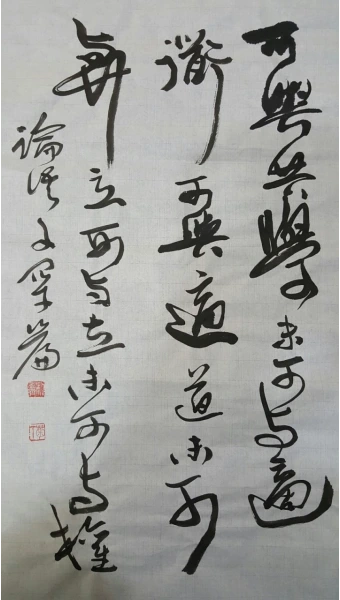 可與共學未可与適
衜可與適道未可
與立可与立未可与權
論語子罕篇